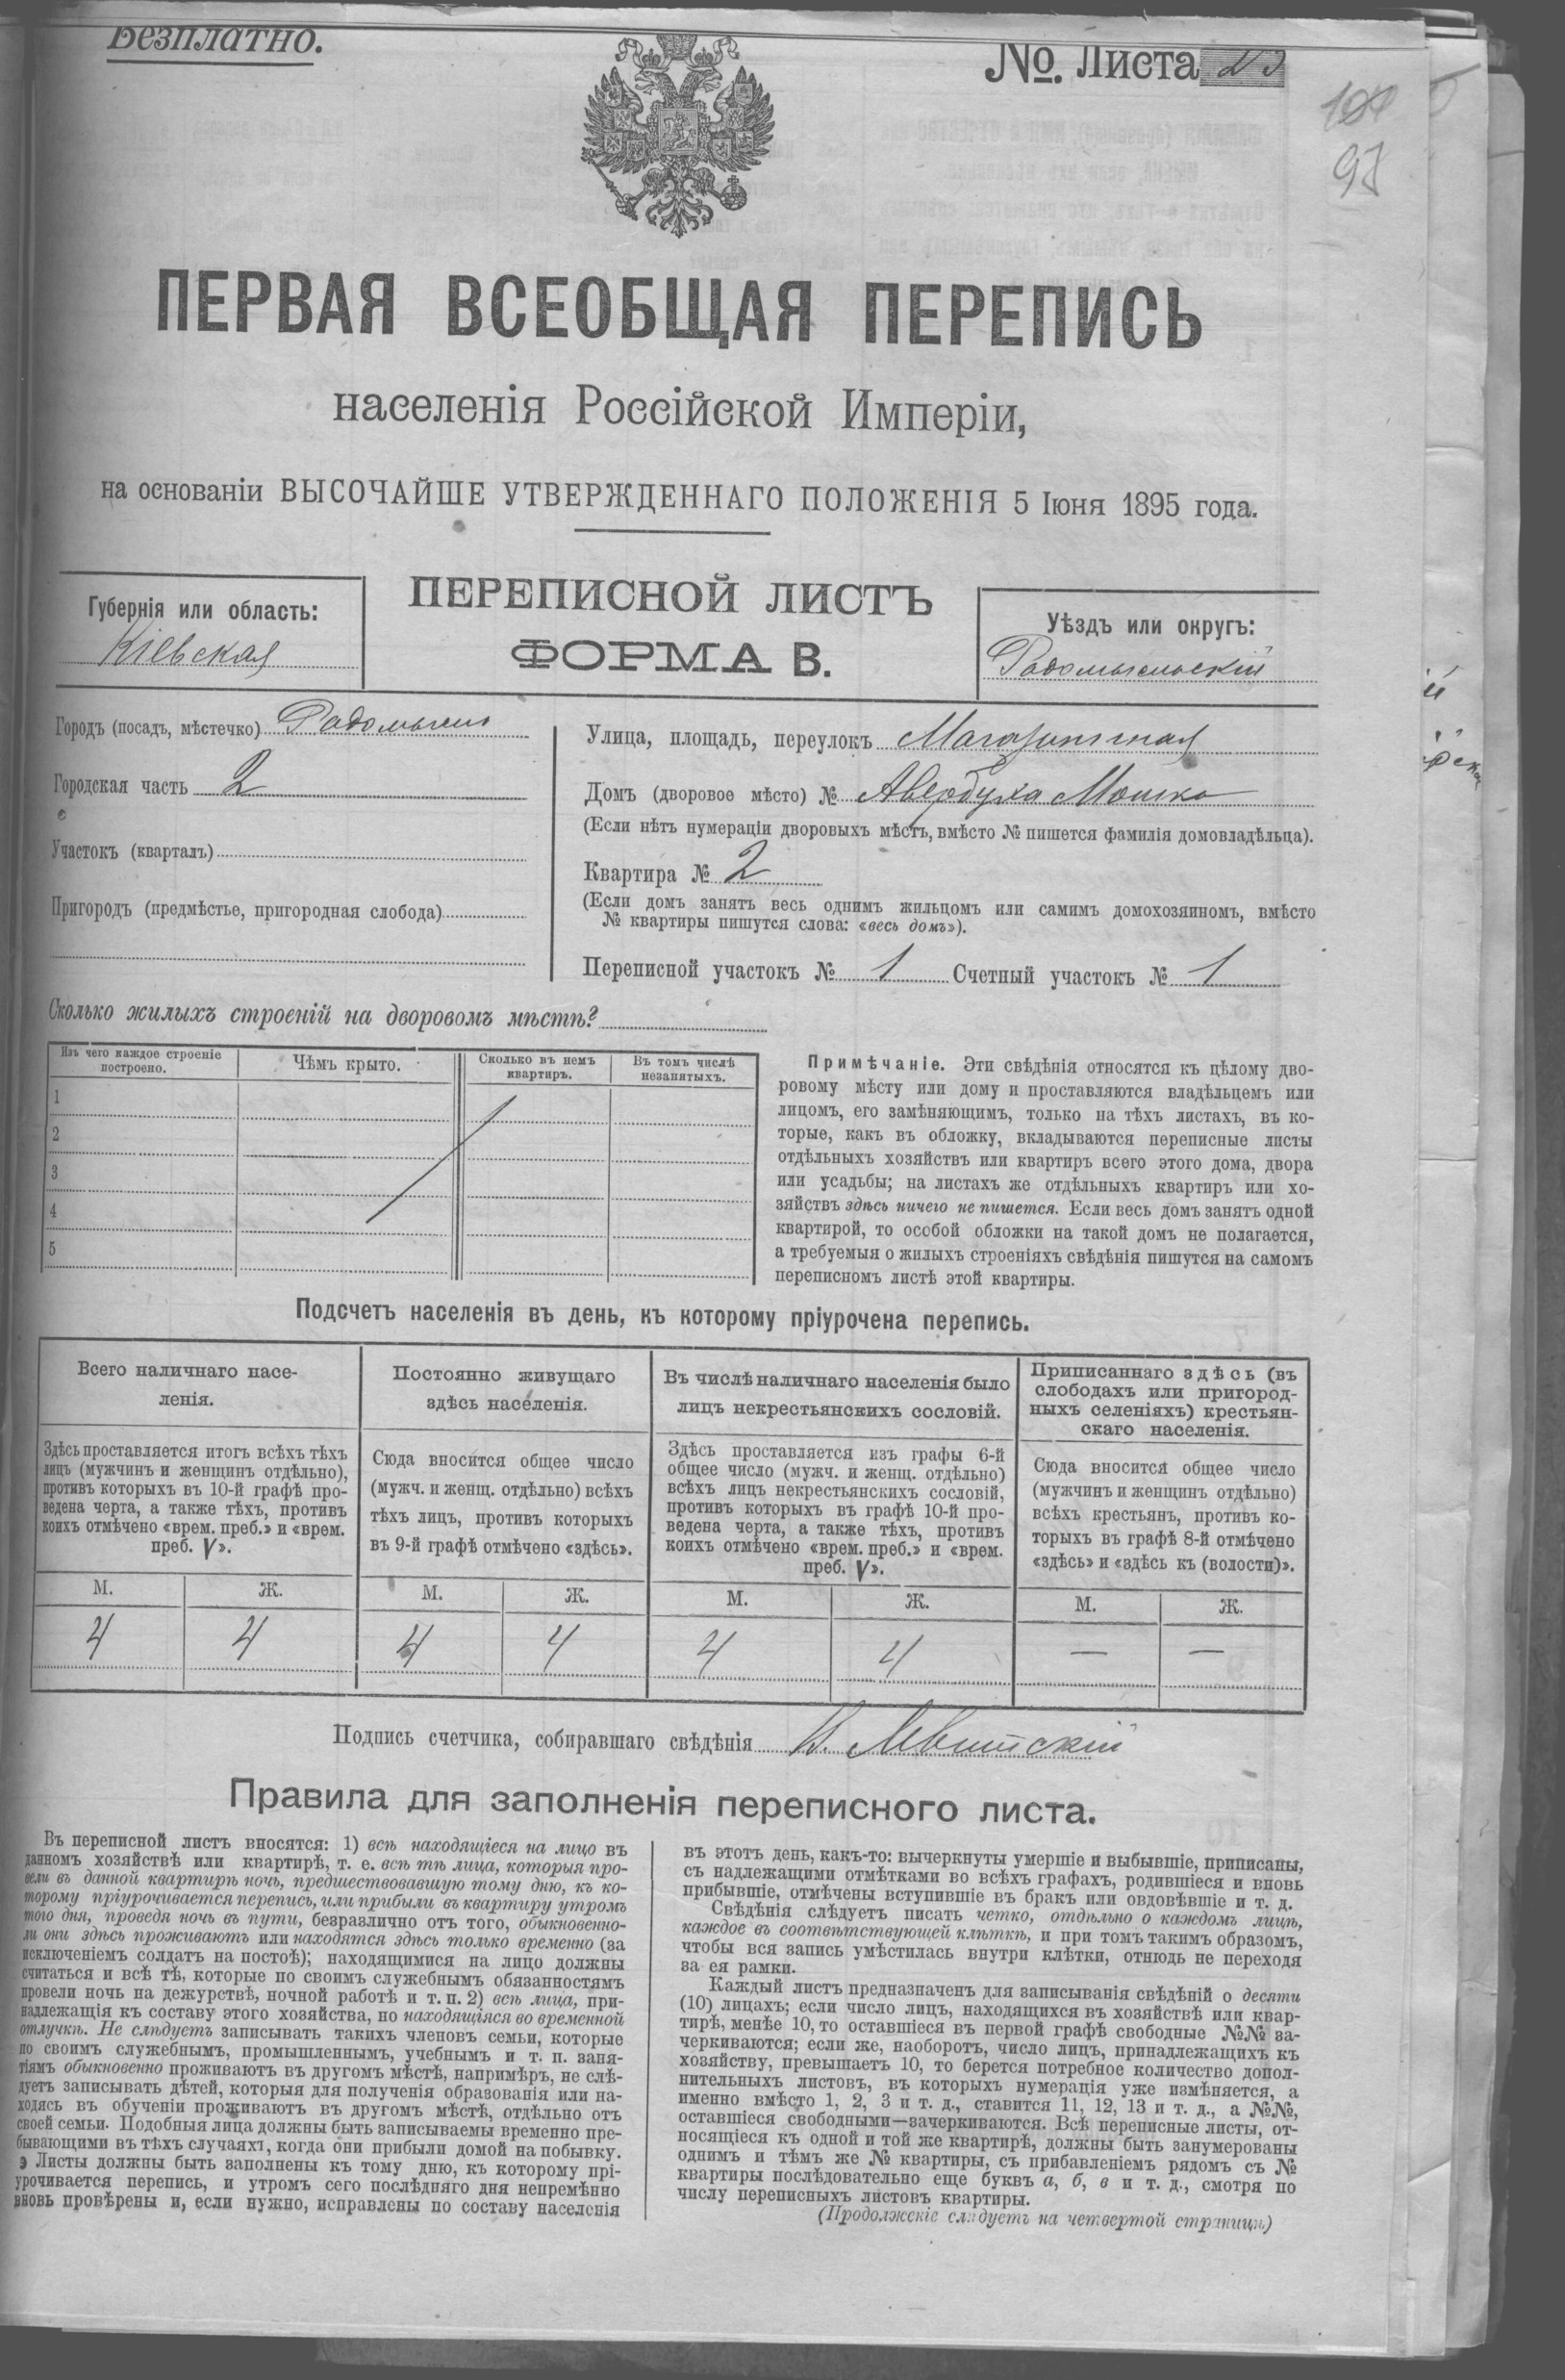 Безплатно.
№. Листа 23
107
97
ПЕРВАЯ ВСЕОБЩАЯ ПЕРЕПИСЬ
населенія Россійской Имперіи,
на основаніи ВЫСОЧАЙШЕ УТВЕРЖДЕННАГО ПОЛОЖЕНІЯ 5 Іюня 1895 года.
Губернія или область:
Кіевская
ПЕРЕПИСНОЙ ЛИСТЪ
ФОРМА В.
Уѣздъ или округъ:
Радомысльскій
Городъ (посадъ, мѣстечко) Радомысль
Городская часть 2
Участокъ (кварталъ)
Пригородъ (предмѣстье, пригородная слобода)
Улица, площадь, переулокъ Магазинная
Домъ (дворовое мѣсто) № Авербуха Мошко
(Если нѣтъ нумераціи дворовыхъ мѣстъ, вмѣсто № пишется фамилія домовладѣльца).
Квартира № 2
(Если домъ занятъ весь однимъ жильцомъ или самимъ домохозяиномъ, вмѣсто
№ квартиры пишутся слова: «весь домъ»).
Переписной участокъ № 1 Счетный участокъ № 1
Сколько жилыхъ строеній на дворовомъ мѣстѣ?
Изъ чего каждое строеніе
построено.
Чѣмъ крыто.
Сколько въ немъ
квартиръ.
Въ томъ числѣ
незанятыхъ.
1
2
3
4
5
Примѣчаніе. Эти свѣдѣнія относятся къ цѣлому дво-
ровому мѣсту или дому и проставляются владѣльцемъ или
лицомъ, его замѣняющимъ, только на тѣхъ листахъ, въ ко-
торые, какъ въ обложку, вкладываются переписные листы
отдѣльныхъ хозяйствъ или квартиръ всего этого дома, двора
или усадьбы; на листахъ же отдѣльныхъ квартиръ или хо-
зяйствъ здѣсь ничего не пишется. Если весь домъ занятъ одной
квартирой, то особой обложки на такой домъ не полагается,
а требуемыя о жилыхъ строеніяхъ свѣдѣнія пишутся на самомъ
переписномъ листѣ этой квартиры.
Подсчетъ населенія въ день, къ которому пріурочена перепись.
Всего наличнаго насе-
ленія.
Постоянно живущаго
здѣсь населенія.
Въ числѣ наличнаго населенія было
лицъ некрестьянскихъ сословій.
Приписаннаго здѣсь (въ
слободахъ или пригород-
ныхъ селеніяхъ) крестьян-
скаго населенія.
Здѣсь проставляется итогъ всѣхъ тѣхъ
лицъ (мужчинъ и женщинъ отдѣльно),
противъ которыхъ въ 10-й графѣ про-
ведена черта, а также тѣхъ, противъ
коихъ отмѣчено «врем. преб.» и «врем.
преб. V».
Сюда вносится общее число
(мужч. и женщ. отдѣльно) всѣхъ
тѣхъ лицъ, противъ которыхъ
въ 9-й графѣ отмѣчено «здѣсь».
Здѣсь проставляется изъ графы 6-й
общее число (мужч. и женщ. отдѣльно)
всѣхъ лицъ некрестьянскихъ сословій,
противъ которыхъ въ графѣ 10-й про-
ведена черта, а также тѣхъ, противъ
коихъ отмѣчено «врем. преб.» и «врем.
преб. V».
Сюда вносится общее число
(мужчинъ и женщинъ отдѣльно)
всѣхъ крестьянъ, противъ ко-
торыхъ въ графѣ 8-й отмѣчено
«здѣсь» и «здѣсь къ (волости)».
М. Ж. М. Ж. М. Ж. М. Ж.
4 4 4 4 4 4 — —
Подпись счетчика, собиравшаго свѣдѣнія В. Левитскій
Правила для заполненія переписного листа.
Въ переписной листъ вносятся: 1) всѣ находящіеся на лицо въ
данномъ хозяйствѣ или квартирѣ, т. е. всѣ тѣ лица, которыя про-
вели въ данной квартирѣ ночь, предшествовавшую тому дню, къ ко-
торому пріурочивается перепись, или прибыли въ квартиру утромъ
того дня, проведя ночь въ пути, безразлично отъ того, обыкновенно-
ли они здѣсь проживаютъ или находятся здѣсь только временно (за
исключеніемъ солдатъ на постоѣ); находящимися на лицо должны
считаться и всѣ тѣ, которые по своимъ служебнымъ обязанностямъ
провели ночь на дежурствѣ, ночной работѣ и т. п. 2) всѣ лица, при-
надлежащія къ составу этого хозяйства, но находящіяся во временной
отлучкѣ. Не слѣдуетъ записывать такихъ членовъ семьи, которые
по своимъ служебнымъ, промышленнымъ, учебнымъ и т. п. заня-
тіямъ обыкновенно проживаютъ въ другомъ мѣстѣ, напримѣръ, не слѣ-
дуетъ записывать дѣтей, которыя для полученія образованія или на-
ходясь въ обученіи проживаютъ въ другомъ мѣстѣ, отдѣльно отъ
своей семьи. Подобныя лица должны быть записываемы временно пре-
бывающими въ тѣхъ случаяхъ, когда они прибыли домой на побывку.
Листы должны быть заполнены къ тому дню, къ которому прі-
урочивается перепись, и утромъ сего послѣдняго дня непремѣнно
вновь провѣрены и, если нужно, исправлены по составу населенія
въ этотъ день, какъ-то: вычеркнуты умершіе и выбывшіе, приписаны,
съ надлежащими отмѣтками во всѣхъ графахъ, родившіеся и вновь
прибывшіе, отмѣчены вступившіе въ бракъ или овдовѣвшіе и т. д.
Свѣдѣнія слѣдуетъ писать четко, отдѣльно о каждомъ лицѣ,
каждое въ соотвѣтствующей клѣткѣ, и при томъ такимъ образомъ,
чтобы вся запись умѣстилась внутри клѣтки, отнюдь не переходя
за ея рамки.
Каждый листъ предназначенъ для записыванія свѣдѣній о десяти
(10) лицахъ; если число лицъ, находящихся въ хозяйствѣ или квар-
тирѣ, менѣе 10, то оставшіеся въ первой графѣ свободные №№ за-
черкиваются; если же, наоборотъ, число лицъ, принадлежащихъ къ
хозяйству, превышаетъ 10, то берется потребное количество допол-
нительныхъ листовъ, въ которыхъ нумерація уже измѣняется, а
именно вмѣсто 1, 2, 3 и т. д., ставится 11, 12, 13 и т. д., а №№,
оставшіеся свободными—зачеркиваются. Всѣ переписные листы, от-
носящіеся къ одной и той же квартирѣ, должны быть занумерованы
однимъ и тѣмъ же № квартиры, съ прибавленіемъ рядомъ съ №
квартиры послѣдовательно еще буквъ а, б, в и т. д., смотря по
числу переписныхъ листовъ квартиры.
(Продолженіе слѣдуетъ на четвертой страницѣ)